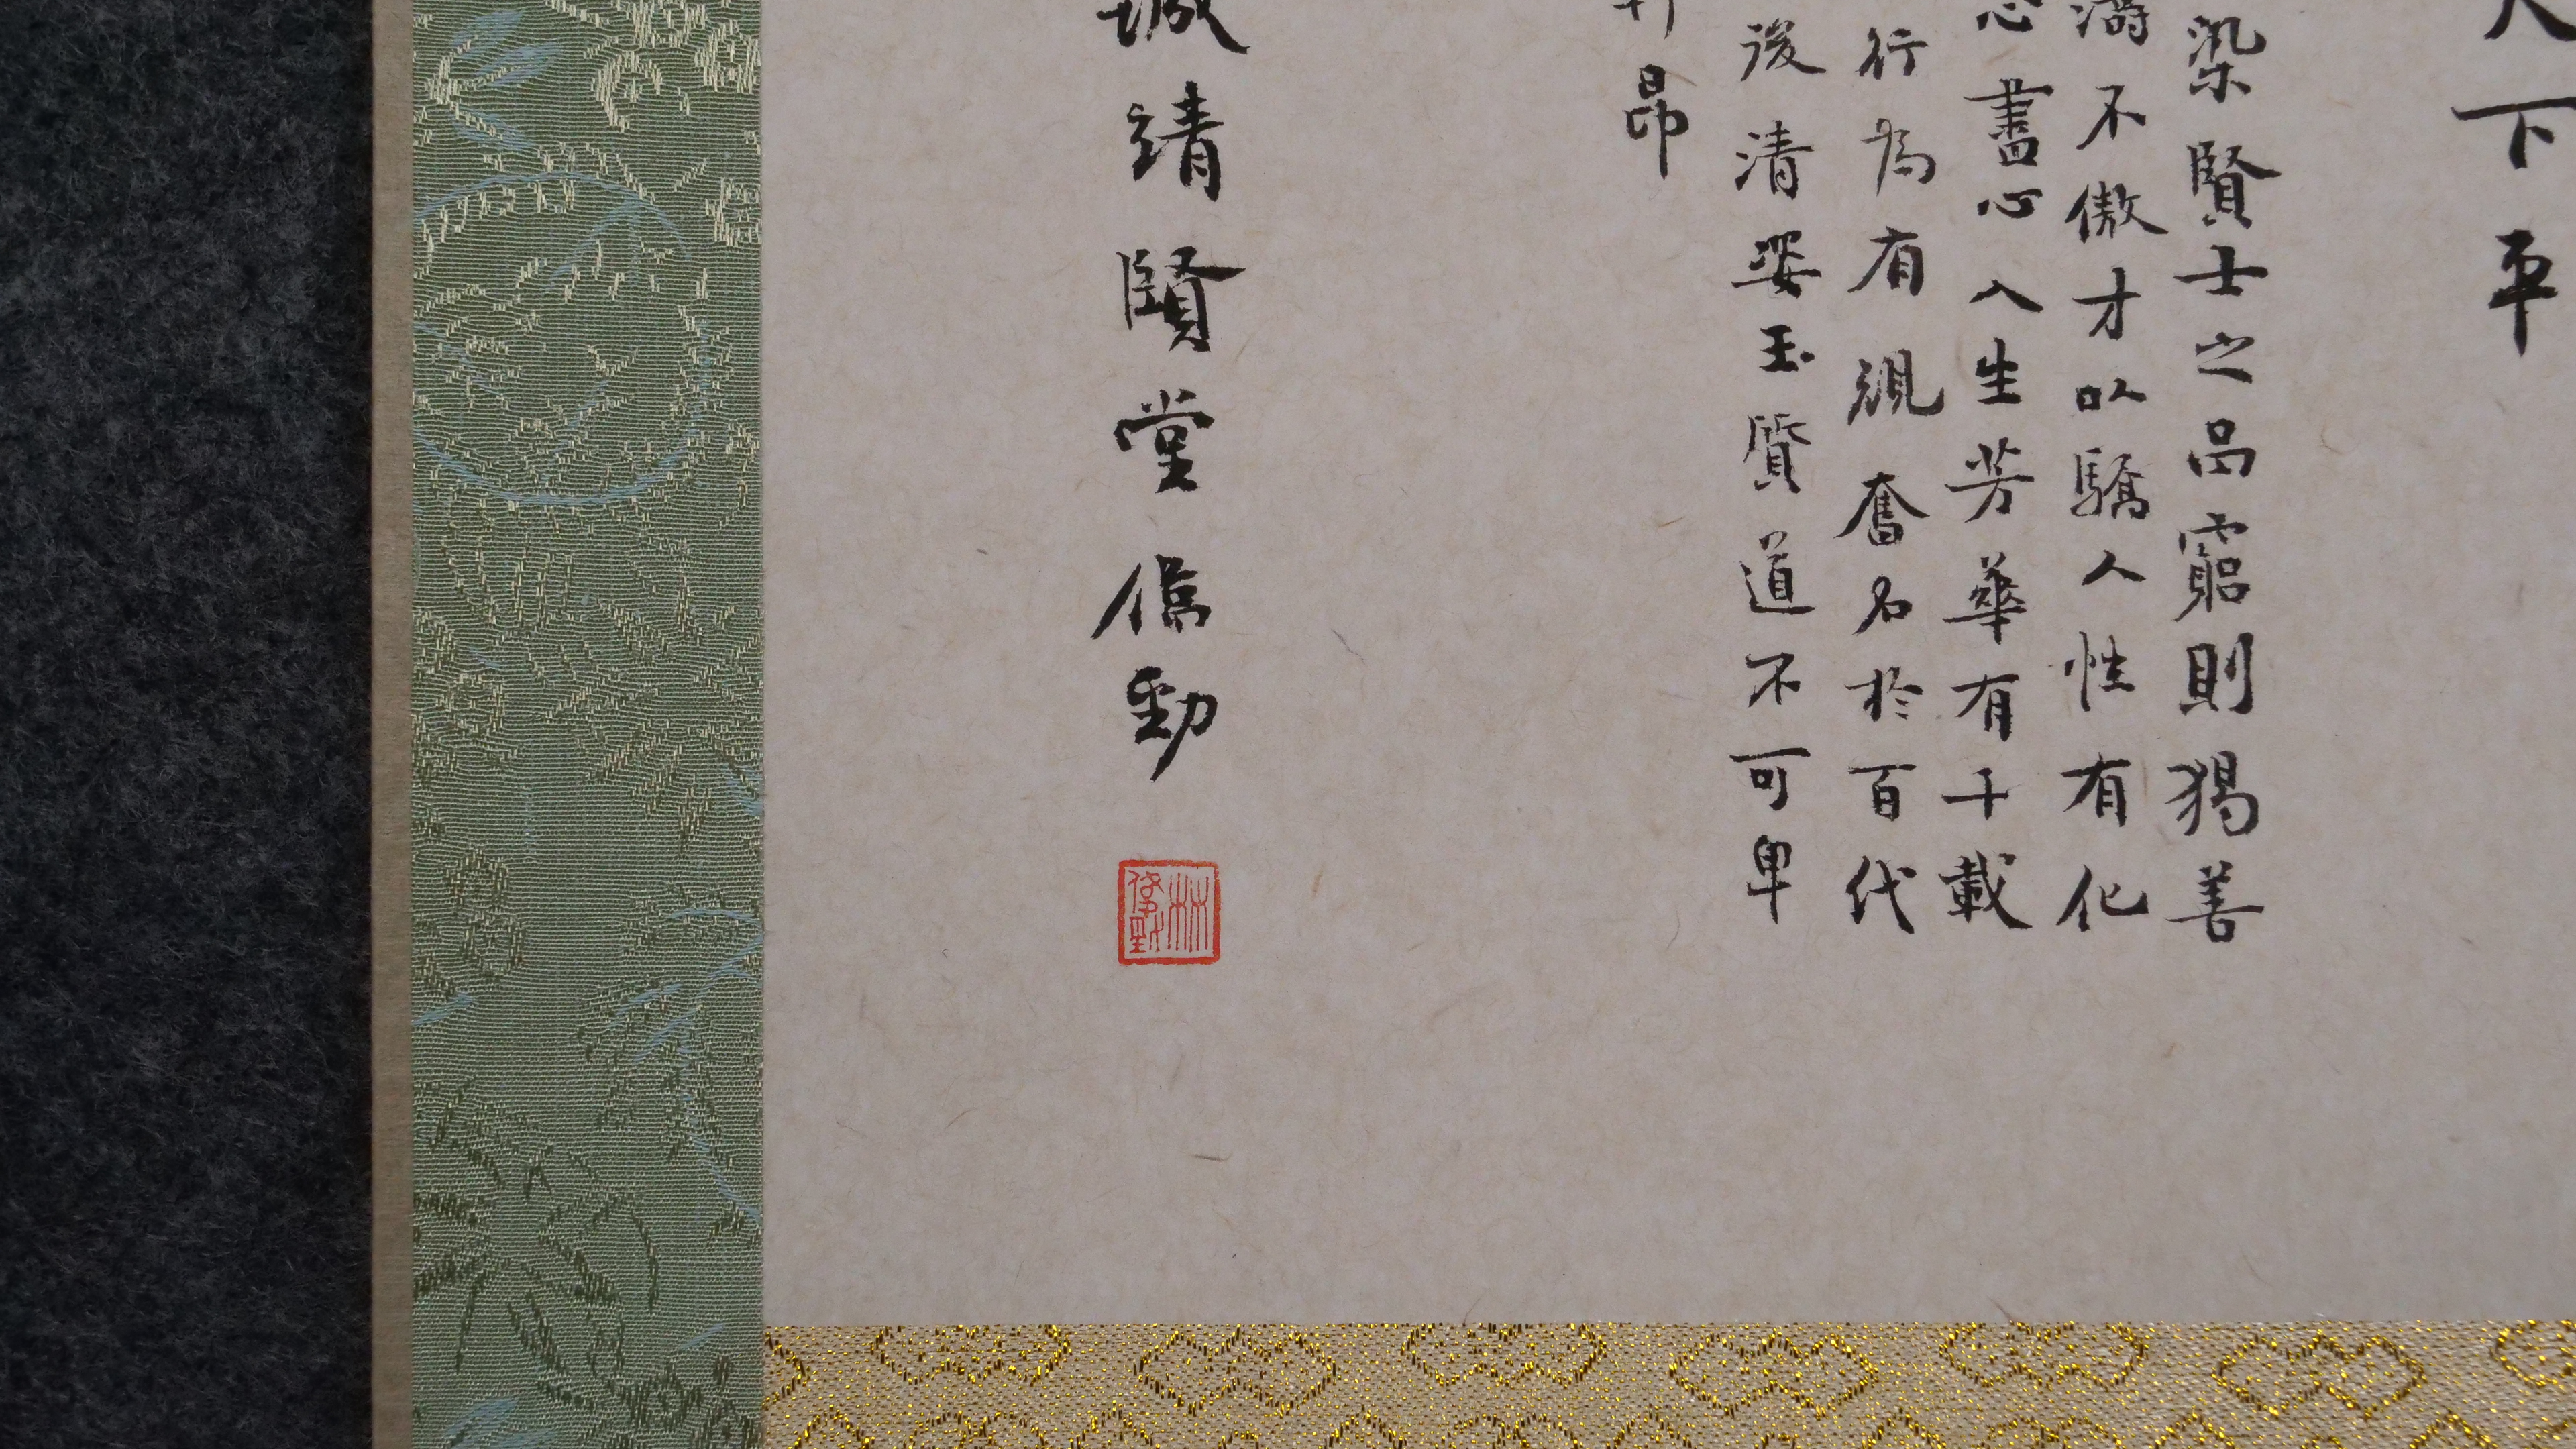 下平
染賢士之品窮則獨善
不傲才以驕人性有化
盡心人生芳華有千載
行為有規奮名於百代
後清姿玉質道不可卑
昂
誠靖賢堂 勁
林